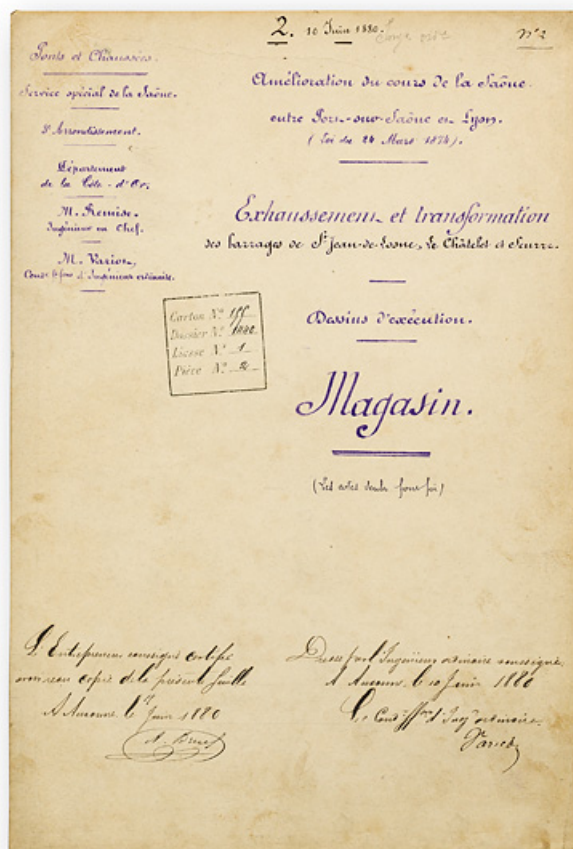 2. 10 Juin 1880.
N° 2
Ponts et Chaussées.
Service spécial de la Saône.
Arrondissement.
Département
de la Côte-d'Or.
M. Remise.
Ingénieur en Chef.
M. Variot,
Condr f.fons d'Ingénieur ordinaire.
Amélioration du cours de la Saône
entre Port-sur-Saône et Lyon.
(Loi du 24 Mars 1874).
Exhaussement et transformation
des barrages de St Jean-de-Losne, Le Châtelet et Seurre.
Dessins d'exécution.
Carton N°
Dossier N° 1880
Liasse N° 1
Pièce N° 2
Magasin.
(Les cotes seules font foi)
L'Entrepreneur soussigné certifie
avoir reçu copie de la présente feuille
A Auxonne, le Juin 1880
Dressé par l'Ingénieur ordinaire soussigné.
A Auxonne, le 10 Juin 1880
Le Condr ffons d'Ingr ordinaire.
Variot